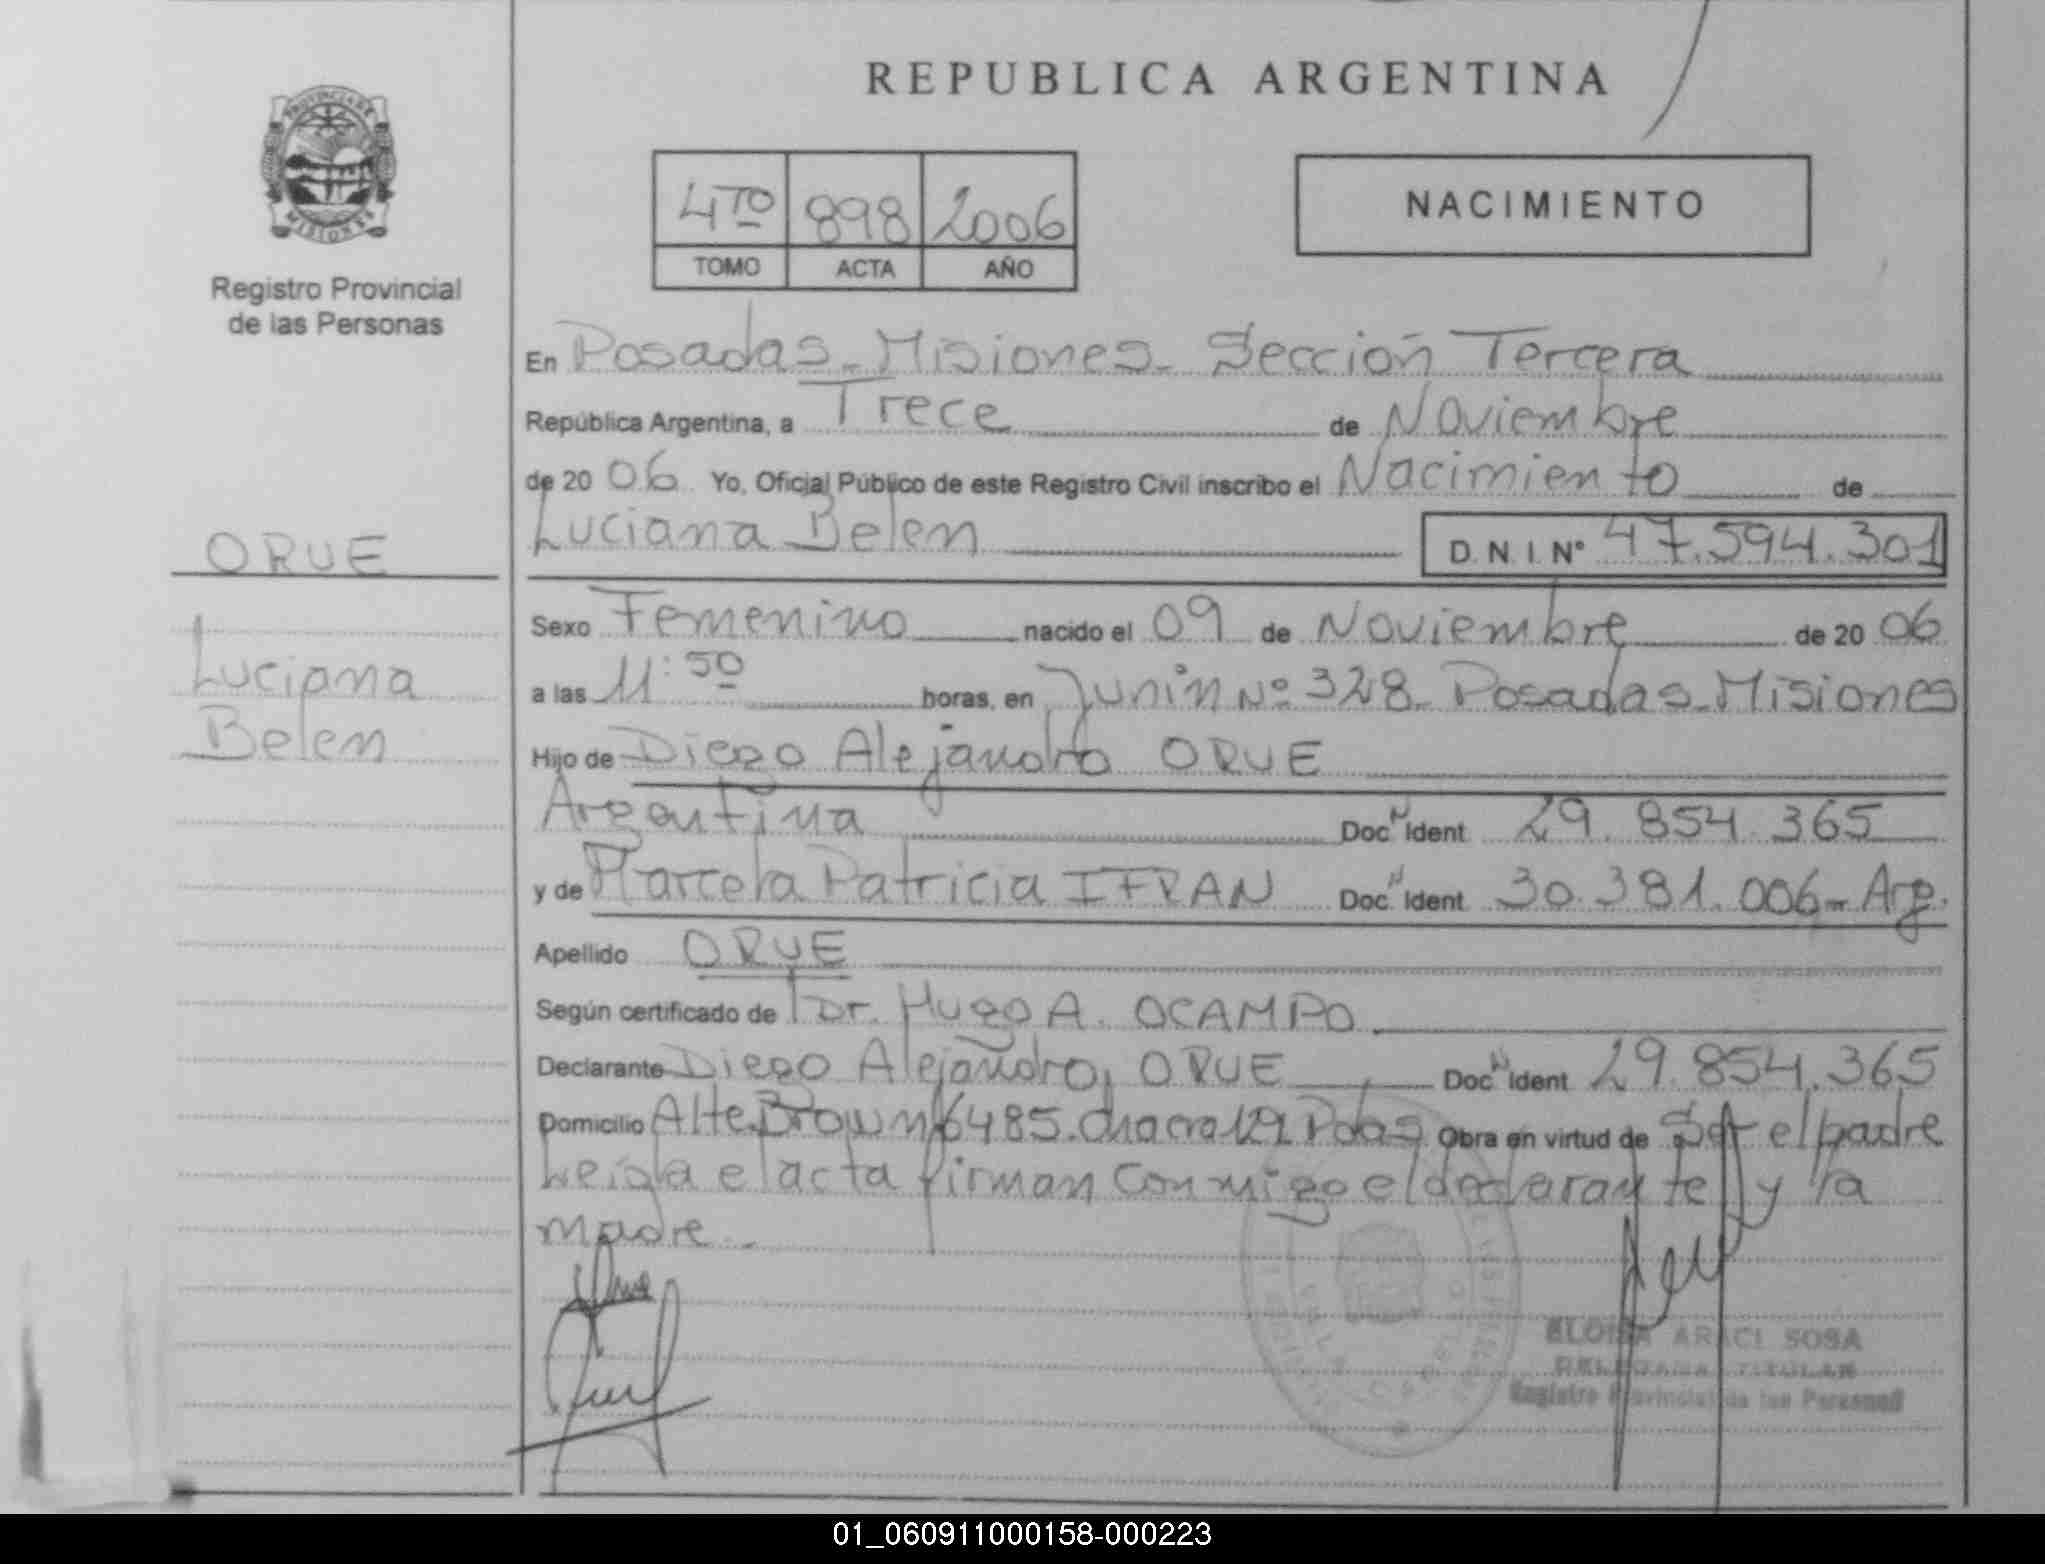 REPUBLICA ARGENTINA
PROVINCIA DE
MISIONES
Registro Provincial
de las Personas
4TO 898 2006
TOMO ACTA AÑO
NACIMIENTO
En Posadas - Misiones - Sección Tercera
República Argentina, a Trece de Noviembre
de 20 06 Yo, Oficial Público de este Registro Civil inscribo el Nacimiento de
Luciana Belen D. N. I. N° 47.594.301
ORUE
Luciana
Belen
Sexo Femenino nacido el 09 de Noviembre de 20 06
a las 11:50 horas, en Junin Nº 328 - Posadas - Misiones
Hijo de Diego Alejandro ORUE
Argentina Doc. N Ident 29.854.365
y de Marcela Patricia IFRAN Doc. N Ident 30.381.006 - Arg.
Apellido ORUE
Según certificado de Dr. Hugo A. OCAMPO
Declarante Diego Alejandro ORUE Doc N Ident 29.854.365
Domicilio Alte. Brown 6485. Chacra 129 Pdas Obra en virtud de Ser el padre
Leida el acta firman conmigo el declarante y la
madre.-
ELOISA ARACI SOSA
DELEGADA TITULAR
Registro Provincial de las Personas
01_060911000158-000223